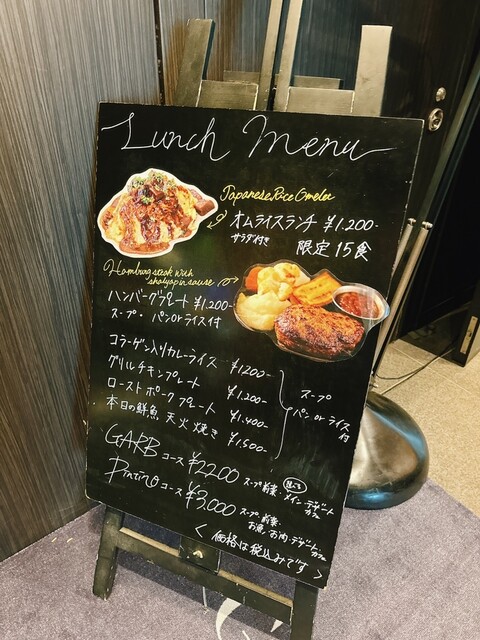 Lunch Menu
Japanese Rice Omelet
オムライスランチ ¥1.200-
サラダ付き 限定15食
Hamburg steak with
shalyapin sause
ハンバーグプレート ¥1.200-
スープ・パンorライス付
コラーゲン入りカレーライス ¥1.200-
グリルチキンプレート ¥1.200-
ローストポークプレート ¥1.400-
本日の鮮魚 天火焼き ¥1.500-
スープ
パン or ライス
付
GARB コース ¥2200 スープ・前菜・メイン・デザート
カフェ
Pintino コース ¥3.000 スープ・前菜・
お魚・お肉・デザート・
カフェ
<価格は税込みです>